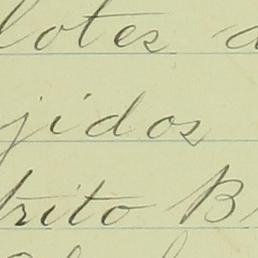 lotes a
jidos
trito B